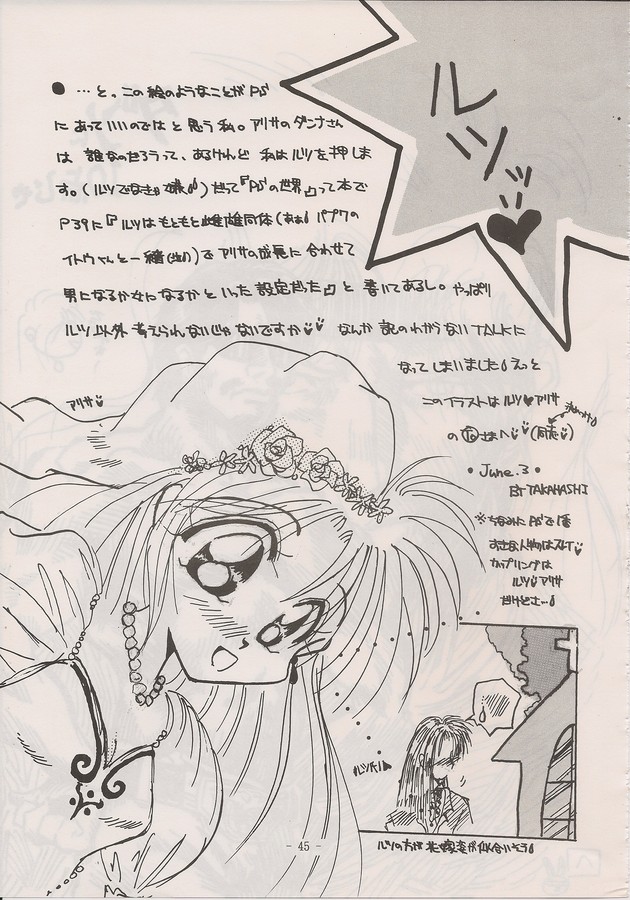 ルツッ♥
● …と。この絵のようなことがPS
にあっていいのではと思う私。アリサのダンナさん
は誰なのだろうって、あるけれど私はルツを押しま
す。(ルツでなきゃ嫌)だって『PSの世界』って本で
P39に『ルツはもともと雌雄同体(ああ パプワの
イトウちゃんと一緒(笑))でアリサの成長に合わせて
男になるか女になるかといった設定だった』と書いてあるし。やっぱり
ルツ以外考えられないじゃないですか なんか訳のわからないTALKに
なってしまいました えっと
アリサ
このイラストはルツ♥アリサ
の さまへ (同志)
• June.3 •
BY TAKAHASHI
※ちなみにPSで1番
おきな人物はスレイ
カップリングは
ルツ♥アリサ
だけどさ…
ルツの方が花嫁姿が似合いそう
- 45 -